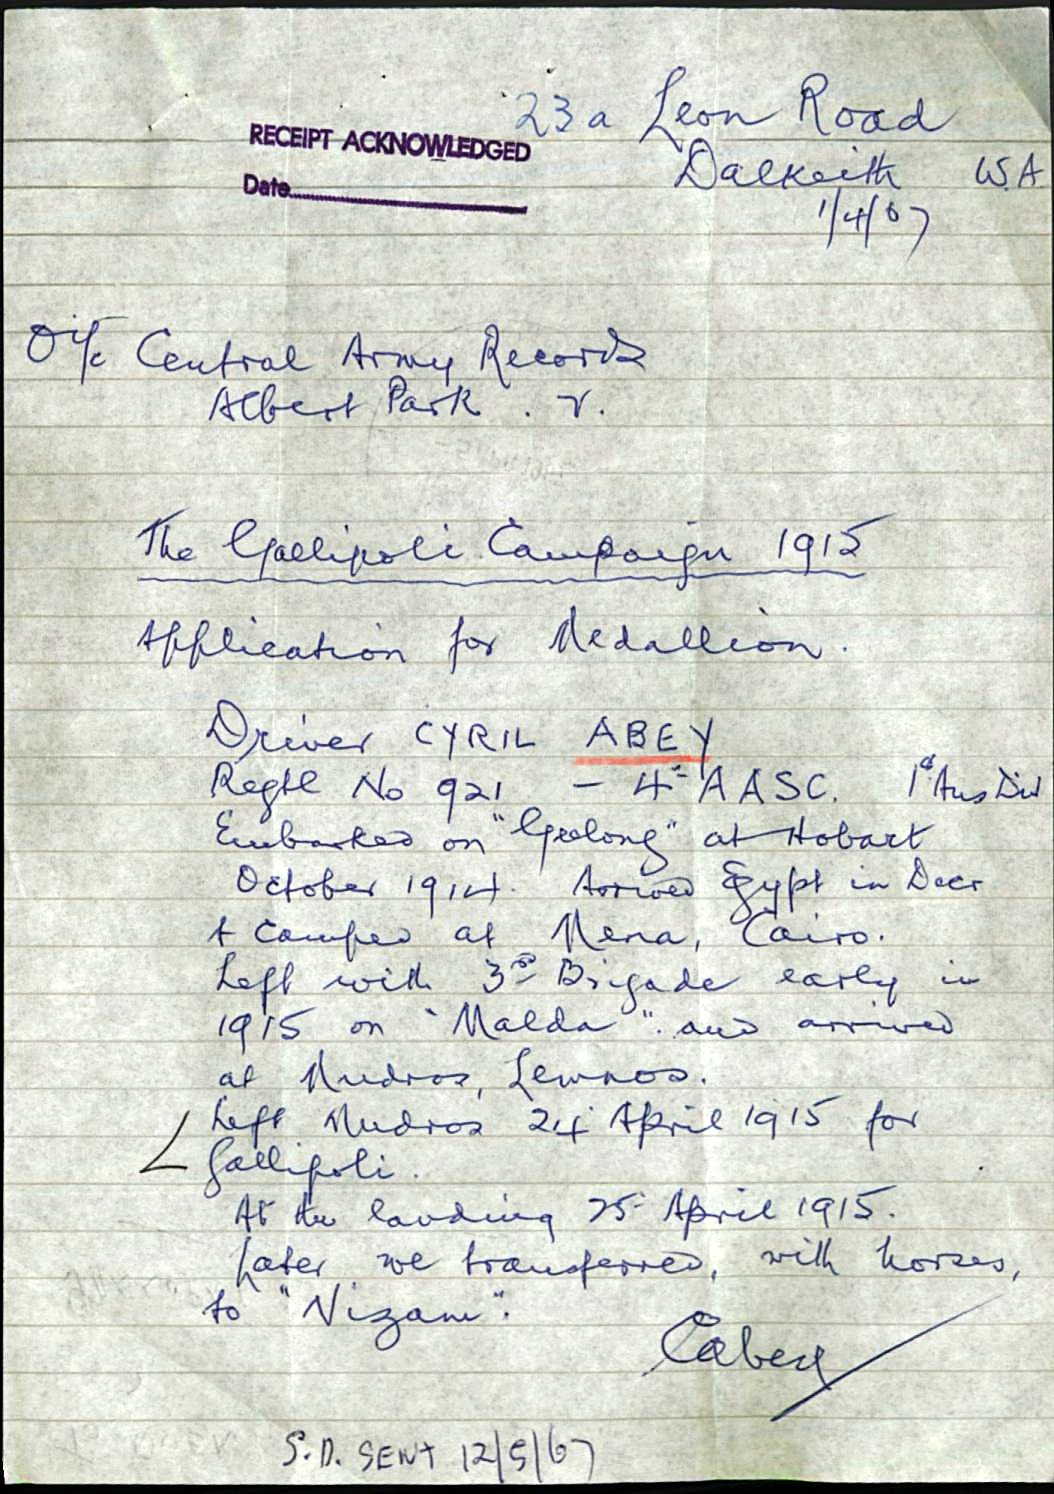 23a Leon Road
RECEIPT ACKNOWLEDGED
Dalkeith W.A
Date
1/4/67
O i/c Central Army Records
Albert Park . V.
The Gallipoli Campaign 1915
Application for Medallion.
Driver CYRIL ABEY
Regtl No 921 - 4th AASC. 1st Aus Div
Embarked on "Geelong" at Hobart
October 1914. Arrived Egypt in Decr
& camped at Mena, Cairo.
Left with 3rd Brigade early in
1915 on "Malda". and arrived
at Mudros, Lemnos.
Left Mudros 24 April 1915 for
Gallipoli.
At the landing 25 April 1915.
Later we transferred, with horses,
to "Nizam".
CAbey
S.D. SENT 12/5/67